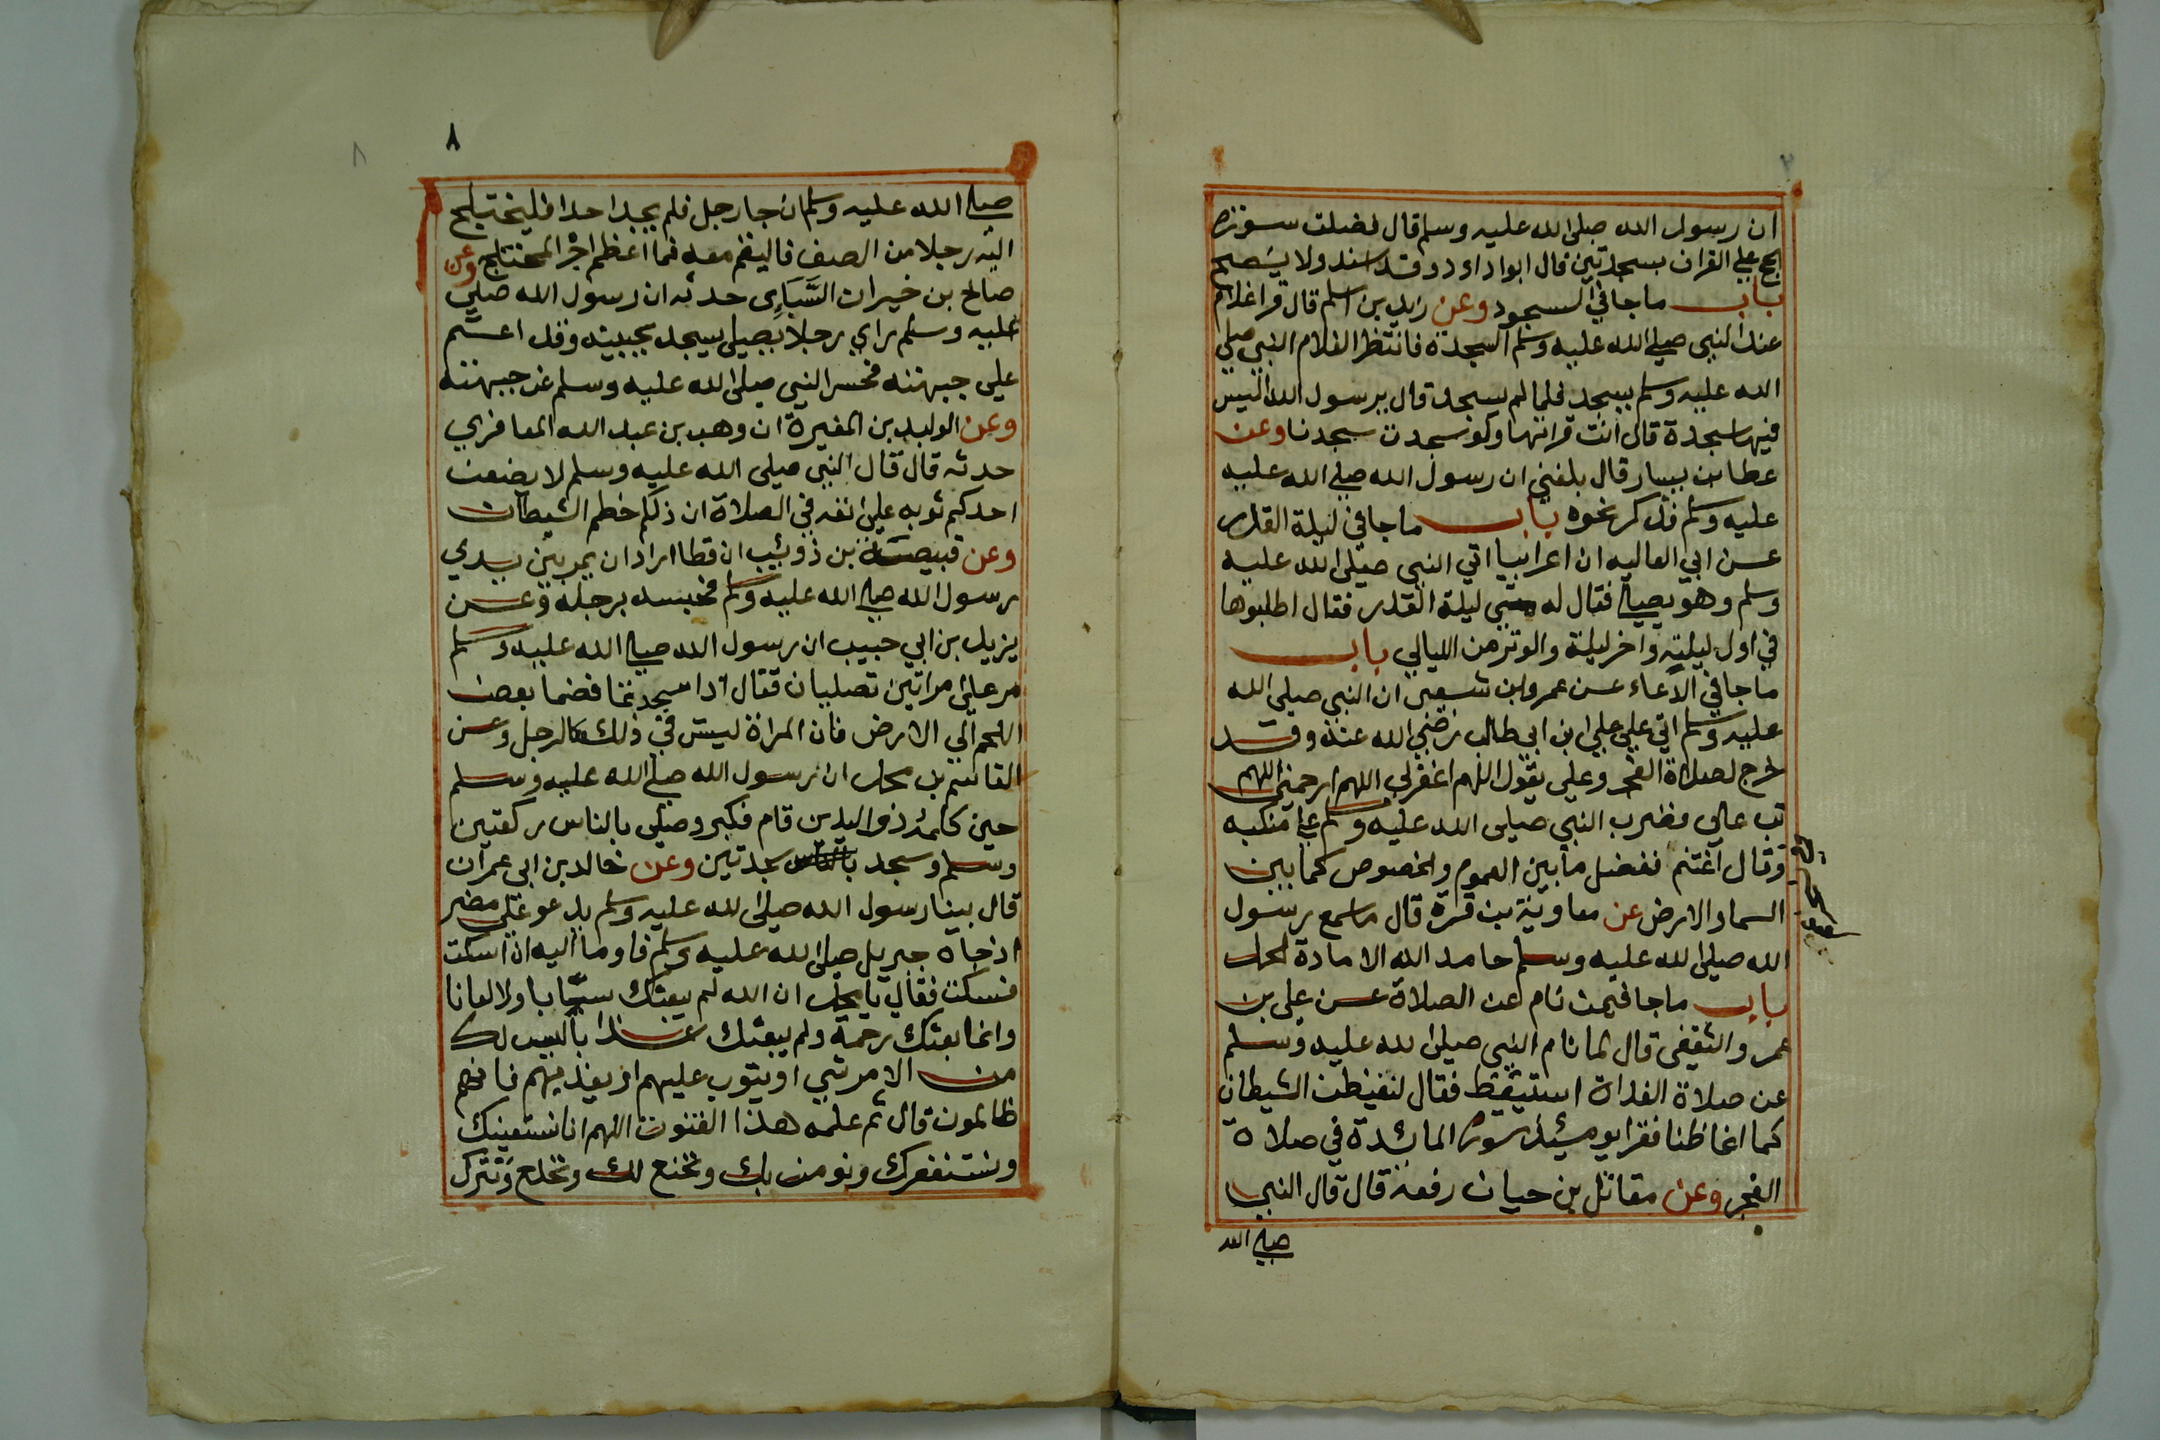 ان رسول الله صلى الله عليه وسلم قال فضلت سورة
الحج علي القران بسجدتين قال ابوا داود وقد اسند ولا يصح
باب ما جا في السجود وعن زيد بن اسلم قال قرا غلام
عند النبي صلي الله عليه وسلم السجدة فانتظر الغلام النبي صلي
الله عليه وسلم يسجد فلما لم يسجد قال يرسول الله اليس
فيها سجدة قال انت قراتها ولو سجدت سجدنا وعن
عطا بن يسار قال بلغني ان رسول الله صلي الله عليه
عليه وسلم فذكر نحوه باب ما جا في ليلة القدر
عن ابي العاليه ان اعرابيا اتي النبي صلى الله عليه
وسلم وهو يصلي فقال له متي ليلة القدر فقال اطلبوها
في اول ليلة واخر ليلة والوتر من الليالي باب
ما جا في الدعاء عن عمرو بن شعيب ان النبي صلى الله
عليه وسلم اتي علي علي ابن ابي طالب رضي الله عنه وقد
خرج لصلاة الفجر وعلي يقول اللهم اغفرلي اللهم ارحمني اللهم
تب علي فضرب النبي صلى الله عليه وسلم علي منكبه
وقال اغتنم ففضل ما بين العموم والخصوص كما بين
السما والارض عن معاوية بن قرة قال ما سمع رسول
الله صلى الله عليه وسلم حامد الله الا مادة
باب ما جا فيمن نام عن الصلاة عن علي بن
عمرو الثقفي قال لما نام النبي صلى الله عليه وسلم
عن صلاة الغداة استيقظ فقال لنغيظن الشيطان
كما اغاظنا فقرا يومئذ سورة المائدة في صلاة
الفجر وعن مقاتل بن حيان رفعه قال قال النبي
صلي الله
٨
٨
صلي الله عليه وسلم ان جا رجل فلم يجد احدا فليختلج
اليه رجلا من الصف فاليقم معه فما اعظم اجر المختلج وعن
صالح بن خيران السباي حدثه ان رسول الله صلي
عليه وسلم راي رجلا يصلي يسجد بجبينه وقد اعتم
علي جبهته فحسر النبي صلى الله عليه وسلم عن جبهته
وعن الوليد بن المغيرة ان وهب بن عبد الله المعافري
حدثه قال قال النبي صلى الله عليه وسلم لا يضعن
احدكم ثوبه علي انفه في الصلاة ان ذلكم خطم الشيطان
وعن قبيصة بن ذوئيب ان قطا اراد ان يمر بين يدي
رسول الله صلي الله عليه وسلم فحبسه برجله وعن
يزيد بن ابي حبيب ان رسول الله صلي الله عليه وسلم
مر علي مراتين تصليان فقال اذا سجدتما فضما بعض
اللحم الي الارض فان المراة ليس في ذلك كالرجل وعن
القاسم بن محمد ان رسول الله صلي الله عليه وسلم
حين كلمه ذو اليدين قام فكبر وصلى بالناس ركعتين
وسلم وسجد سجدتين وعن خالد بن ابي عمران
قال بينا رسول الله صلى الله عليه وسلم يدعو على مضر
اذ جاه جبريل صلى الله عليه وسلم فاوما اليه ان اسكت
فسكت فقال يا محمد ان الله لم يبعثك سبابا ولا لعانا
وانما بعثك رحمة ولم يبعثك عذابا ليس لك
من الامر شي او يتوب عليهم او يعذبهم فانهم
ظالمون قال ثم علمه هذا القنوت اللهم انا نستعينك
ونستغفرك ونومن بك ونخنع لك ونخلع ونترك